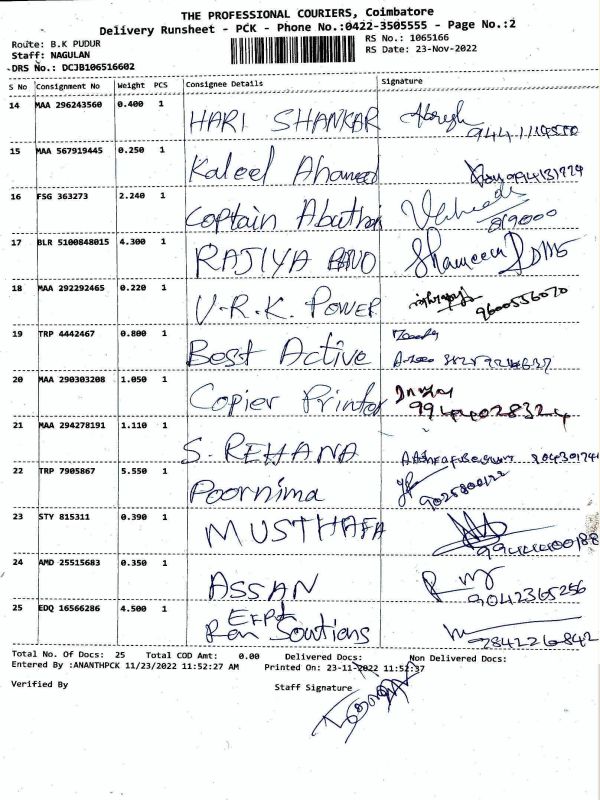 THE PROFESSIONAL COURIERS, Coimbatore
Delivery Runsheet - PCK - Phone No.:0422-3505555 - Page No.:2
Route: B.K PUDUR
RS No.: 1065166
Staff: NAGULAN
RS Date: 23-Nov-2022
DRS No.: DCJB106516602
S No Consignment No Weight PCS Consignee Details Signature
14 MAA 296243560 0.400 1 HARI SHANKAR
15 MAA 567919445 0.250 1 Kaleel Ahamed
16 FSG 363273 2.240 1 Captain
17 BLR 5100848015 4.300 1 RAJIYA BANO Shameem
18 MAA 292292465 0.220 1 V.R.K. POWER 9600556070
19 TRP 4442467 0.800 1 Best Active
20 MAA 290303208 1.050 1 Copier Printer
21 MAA 294278191 1.110 1 S. REHANA
22 TRP 7905867 5.550 1 Poornima
23 STY 815311 0.390 1 MUSTHAFA 9944400188
24 AMD 25515683 0.350 1 ASSAN 9042365256
25 EDQ 16566286 4.500 1 7842260842
Total No. Of Docs: 25 Total COD Amt: 0.00 Delivered Docs: Non Delivered Docs:
Entered By :ANANTHPCK 11/23/2022 11:52:27 AM Printed On: 23-11-2022 11:52:37
Verified By Staff Signature